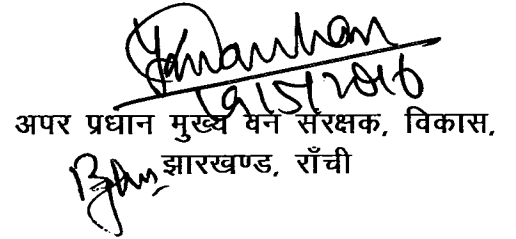 19/5/2016
अपर प्रधान मुख्य वन संरक्षक, विकास,
झारखण्ड, राँची